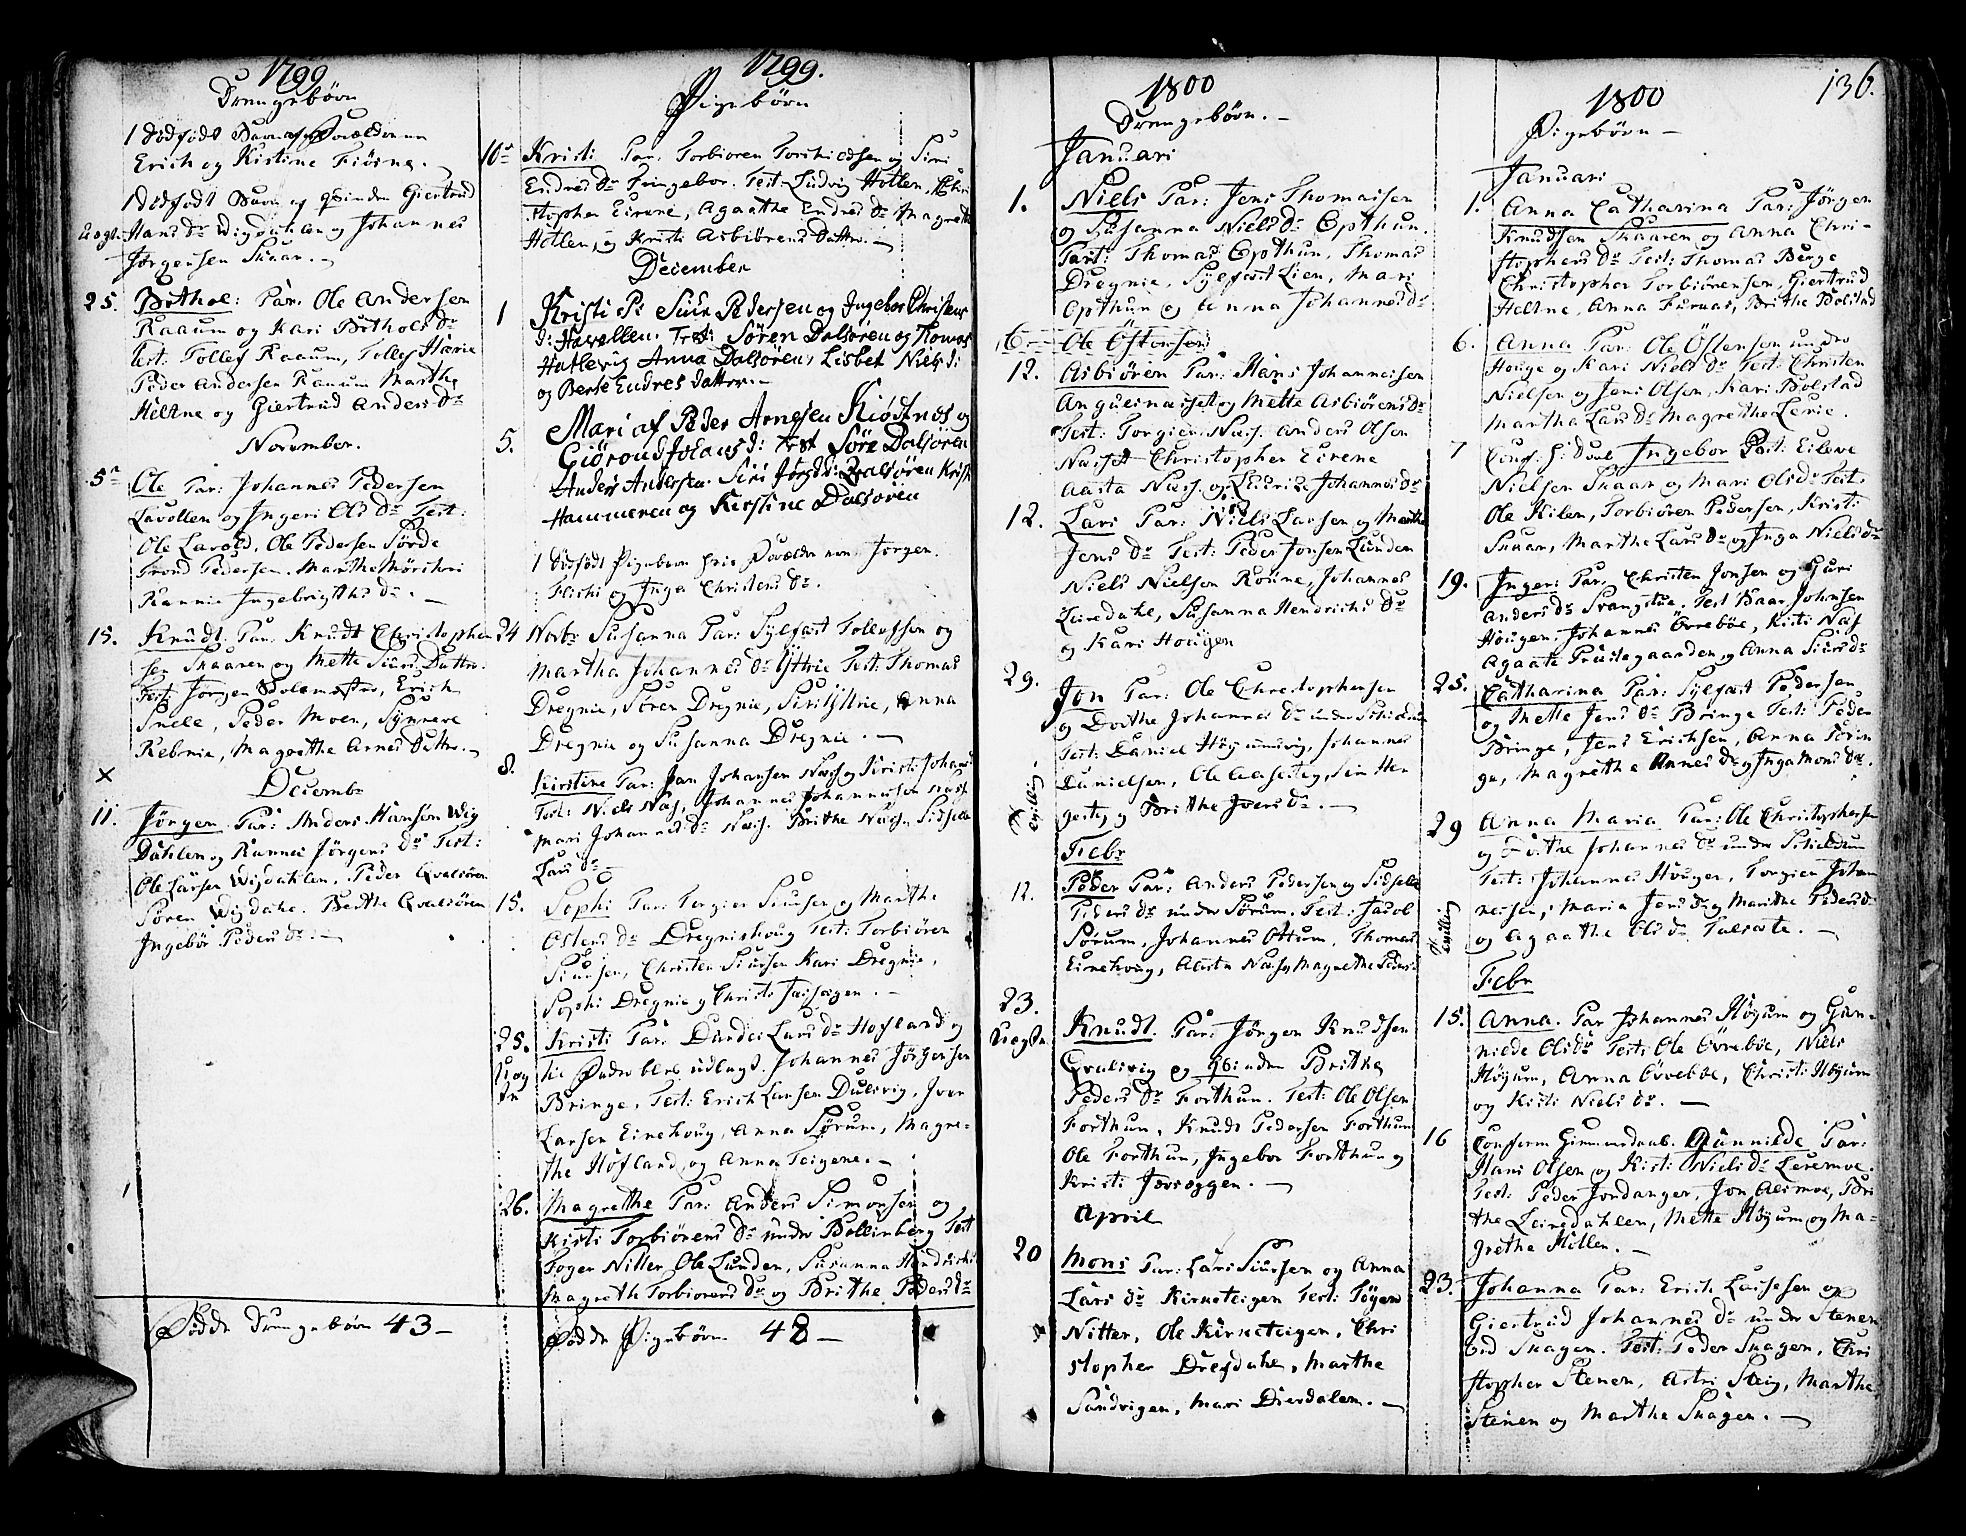 1799
Drengebörn
1 dödfödt Barn af Forældrene
Erich og Kistine Fiösne.
1 dödfödt Barn af qvinden Giertrud
uægt. Hans Dr Wigdahlen og Johannes
Jörgensen Skaar.
25. Bothol: Par: Ole Andersen
Raaum og Kari Bothols Dr
Test: Tollef Raaum, Tollef
Peder Andersen Raaum Marthe
Heltne og Giertrud Anders Dr
November.
5 Ole Par: Johannes Pedersen
Lavollen og Ingeri Ols Dr Test:
Ole Lavold, Ole Pedersen Sörde
Trond Pedersen. Marthe
Rannie Ingebrigths dr.
15. Knudt. Par. Knudt Christopher
sen Skaaren og Mette Siurs Datter.
Test Jörgen Skolemester, Erich
Snele, Peder Moen, Synneve
Rebnie, Magrethe Arnes Datter.
×
Decembr
11. Jörgen. Par: Anders Hansen Wig
Dahlen og Rannei Jörgens Dr Test:
Ole Larsen Wigdahlen. Peder Qvalsören
Sören Wigdahl. Berthe Qvalsören
Ingebör Peders dr.
Födde Drengebörn 43
1799.
Pigebörn
10 Kristi Par: Torbioren og Siri
Endres Dr Fringebor. Test: Ludvig Hotlen, Chri
stopher Eirene, Agaathe Endres dr Magrethe
Hotlen, og Kristi Asbiörens Datter.
December
1 Kristi P: Siur Pedersen og Ingebor Christens
d: Havellen. Test: Sören Dalsören og Tomas
Hatlevig Anna Dalsören, Lisbet Niels d:
og Berte Endres datter.
5. Mari af Peder Arnesen Kiödtnes og
Giörond Jolans d: test Söre Dalsören
Anders Andersen. Siri Jörgds: Dalsören Krist
Hammeren og Kerstine Dalsören
1 dödfödt Pigebarn hvis Forældre vare Jörgen
Flischi og Inga Christens Dr.
24 Novbr Susanna Par: Sylfest Tollefssen og
Martha Johannes Dr Ytrie Test: Thomas
Dregnie, Sören Dregnie, Siri Ytrie, Anna
Dregnie og Susanna Dregnie.
8. Kirstine Par: Jan Johansen Næs og Kristi Johans
Test: Niels Næs, Johannes Johannessen Næss
Mari Johannes dr Næss. Brithe Næss. Sidsele
Lars dr
15. Sophi Par: Torgier Siursen og Marthe
Ostens Dr Dregnishoug Test: Torbiören
Siursen, Christen Siursen Kari Dregnie,
Sophi Dregnie og Christi.
25. Kristi Par: Dardei Lars Dr Hofland og
til Fader blev udlagt. Johannes Jörgensen
Bringe, Test: Erich Larsen Dulsvig, Iver
Larsen Einehoug, Anna Sörum, Magre-
the Höfland, og Anna Teigene.
26. Magrethe Par: Anders Simonsen og
Kisti Torbiörens dr under Bollinberg Test
Toger Nitter, Ole Lunden, Susanna Hendrichs
Magreth Torbiorens Dr og Brithe Peders dr
Födde Pigebörn 48
1800
Drengebörn.
Januari
1. Niels Par: Jens Thomassen
og Susanna Niels Dr Opthun.
Test: Thomas Opthun, Thomas
Dregnie, Sylfest Lien, Mari
Opthun og Anna Johannes dr
6. Ole Östensen
12. Asbiören Par: Hans Johannessen
og Mette Asbiörens dr
Test: Torgier Næss. Anders Olsen
Næss Christopher Eirene
Aasta Næss. og Johannes dr
12. Lars Par: Niels Larsen og Marthe
Jens Dr Test: Peder Jonsen Lunden
Niels Nielsen Roune, Johannes
Leiredahl, Susanna Hendrichs Dr
og Kari Hougen
29. Jon Par: Ole Christophersen
og Dorthe Johannes Dr under
Test: Daniel, Johannes
Danielsen, Ole
og Brithe Ivers Dr.
tvilling
Febr
12. Peder Par: Anders Pedersen og Sidsele
Peders Dr under Sörum. Test: Jacob
Sörum, Johannes Ottum, Thomas
Einehoug, Aasta Næss og Magrethe Peders d
23. Knudt. Par: Jörgen Knudsen
Qvalsvig og Qvinden Brithe
Peders Dr Forthun. Test: Ole Olsen
Forthun, Knudt Pedersen Forthun
Ole Forthun, Ingebor Forthun og
Kristi.
April
20 Mons Par: Lars Siursen og Anna
Lars Dr Kirketeigen Test: Töger
Nitter, Ole Kirketeigen, Chri
stopher Dregdahl, Marthe
Sandvigen, Mari Dierdalen.
136.
1800
Pigebörn
Januari
1. Anna Catharina Par: Jörgen
Knudsen Skaaren og Anna Chri-
stophers Dr Test: Thomas Berge
Christopher Torbiörensen, Giertrud
Heltne, Anna Furuas, Brithe Bolstad
6. Anna Par: Ole Östensen under
Houge og Kari Niels Dr Test: Christen
Nielsen og Jens Olsen, Kari Bolstad
Martha Lars Dr Magrethe Lerie.
7 Ingebor Par: Eileve
Nielsen Skaar og Mari Ols Dr Test:
Ole Kilen, Torbiören Pedersen, Kristi
Skaar, Marthe Lars Dr og Inga Niels dr
19. Inger: Par: Christen Jonsen og Guri
Anders dr Svangstue. Test Baar Johnsen
Hougen, Johannes Övreböe, Kisti Næs
Agaate Prestegaarden og Anna Siurs dr
25. Catharina Par: Sylfest Pedersen
og Mette Jens dr Bringe Test: Peder
Bringe, Jens Erichsen, Anna
Magrethe Annes Dr og Inga Mons Dr.
29 Anna Maria Par: Ole Christophersen
og Dorthe Johannes Dr under
Test: Johannes Houger, Torgier Johan
nessen, Maria Jens Dr og Marthe Peders D
og Agaathe Ols Dr Talsæte.
tvilling
Febr
15. Anna. Par Johannes Höyum og Gun-
nilde Ols dr Test: Ole Övreböe, Niels
Höyum, Anna Övreböe, Christi Höyum
og Kisti Niels Dr.
16 Gunnilde Par:
Hans Olsen og Kisti Niels Dr Leirmoe.
Test: Peder Jordanger, Jon Alsmoe, Bri
the Leiredahlen, Mette Höyum og Ma-
grethe Hillen.
23. Johanna Par: Erich Lassesen og
Giertrud Johannes Dr under Stenen
ved Skagen. Test: Peder Skagen, Chri
stopher Stenen, Astri Steig, Marthe
Stenen og Marthe Skagen.